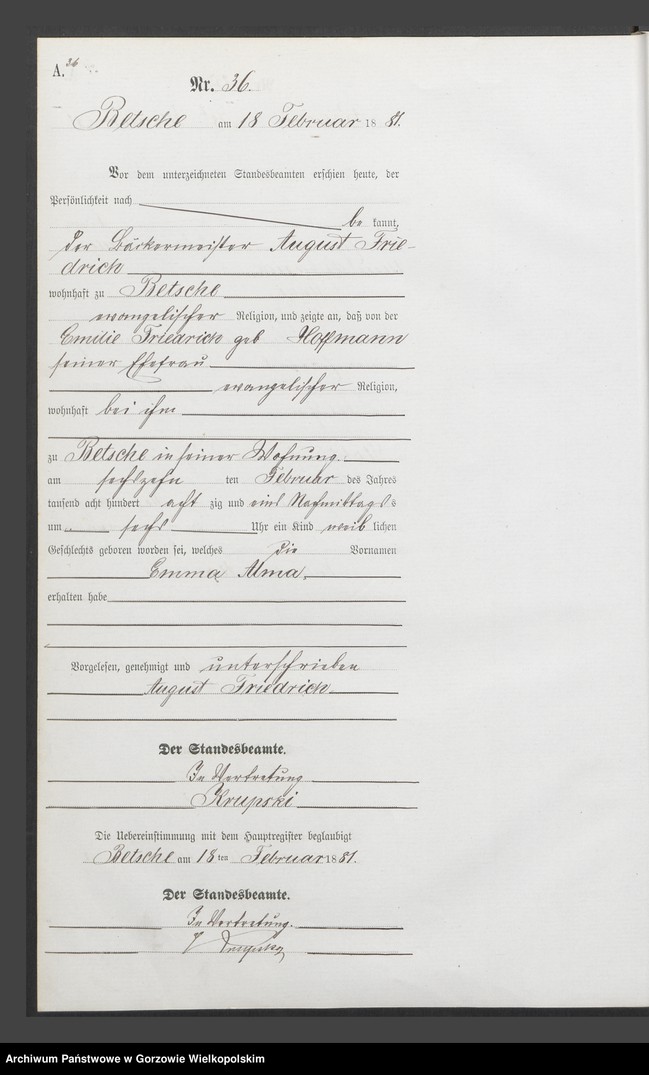 A. 36
Nr. 36.
Betsche am 18 Februar 1881.
Vor dem unterzeichneten Standesbeamten erschien heute, der
Persönlichkeit nach
be kannt,
der Bäckermeister August Frie-
drich
wohnhaft zu Betsche
evangelischer Religion, und zeigte an, daß von der
Emilie Friedrich geb Hoffmann
seiner Ehefrau
evangelischer Religion,
wohnhaft bei ihm
zu Betsche in seiner Wohnung.
am sechszehn ten Februar des Jahres
tausend acht hundert acht zig und eins Nachmittags s
um sechs Uhr ein Kind weib lichen
Geschlechts geboren worden sei, welches die Vornamen
Emma Alma.
erhalten habe
Vorgelesen, genehmigt und unterschrieben
August Friedrich
Der Standesbeamte.
In Vertretung
Krupski
Die Uebereinstimmung mit dem Hauptregister beglaubigt
Betsche am 18ten Februar 1881.
Der Standesbeamte.
In Vertretung.
Archiwum Państwowe w Gorzowie Wielkopolskim